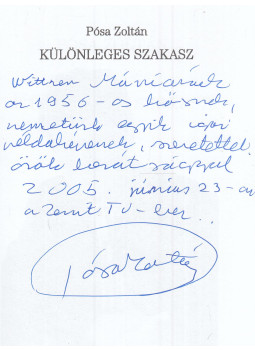 Pósa Zoltán
KÜLÖNLEGES SZAKASZ
Wittner Máriának
az 1956-os hősnek,
nemzetünk egyik igazi
példaképének, szeretettel
örök barátsággal
2005. június 23-án
a Zenit TV-ben
Pósa Zoltán